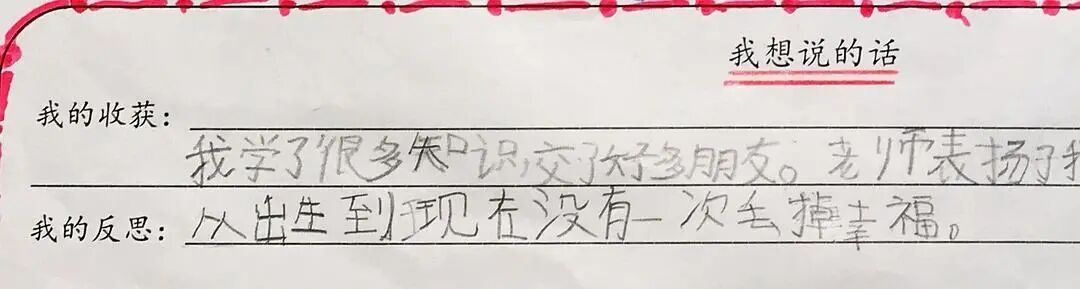 我想说的话
我的收获：
我学了很多知识，交了好多朋友。老师表扬了我
我的反思：从出生到现在没有一次丢掉幸福。